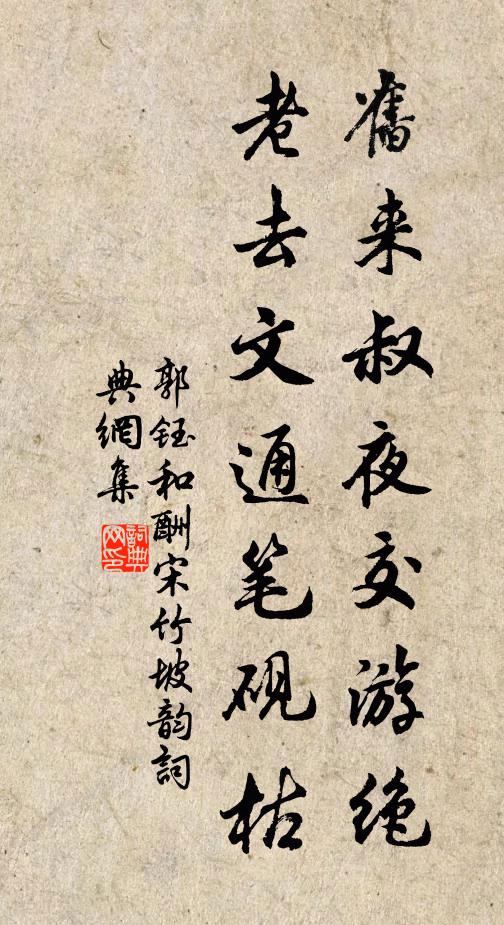 舊来叔夜交游绝
老去文通笔砚枯
郭鈺和酬宋竹坡韵詞
典網集
詞典网印